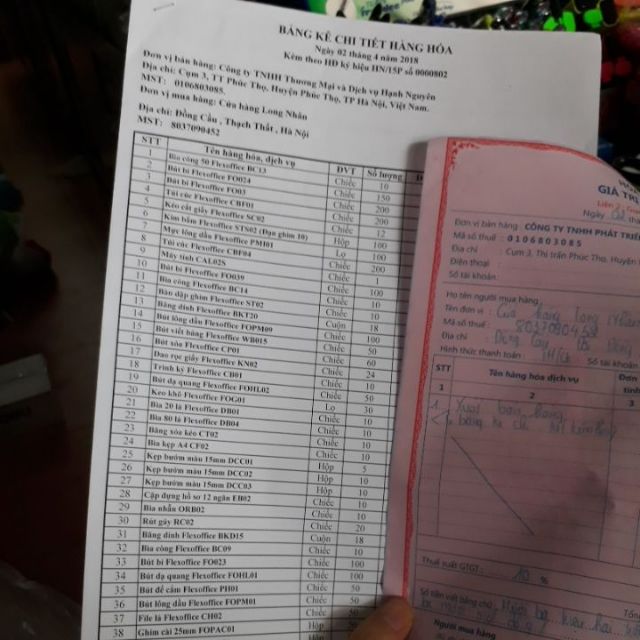 BẢNG KÊ CHI TIẾT HÀNG HÓA
Ngày 02 tháng 4 năm 2018
Kèm theo HĐ ký hiệu HN/15P số 0060802
Đơn vị bán hàng: Công ty TNHH Thương Mại và Dịch vụ Hạnh Nguyên
Địa chỉ: Cụm 3, TT Phúc Thọ, Huyện Phúc Thọ, TP Hà Nội, Việt Nam.
MST: 0106803085.
Đơn vị mua hàng: Cửa hàng Long Nhân
Địa chỉ: Đồng Cầu, Thạch Thất, Hà Nội
MST: 8037090452
STT Tên hàng hóa, dịch vụ ĐVT Số lượng
1 Bìa còng 50 Flexoffice BC13 Chiếc 10
2 Bút bi Flexoffice FO024 Chiếc 150
3 Bút bi Flexoffice FO03 Chiếc 200
4 Túi cúc Flexoffice CBF01 Chiếc 200
5 Kéo cắt giấy Flexoffice SC02 Chiếc 12
6 Kim bấm Flexoffice STS02 (Đạn ghim 10) Hộp 100
7 Mực lông dầu Flexoffice PMI01 Lọ 100
8 Túi cúc Flexoffice CBF04 Chiếc 200
9 Máy tính CAL02S Chiếc
10 Bút bi Flexoffice FO039 Chiếc 100
11 Bìa còng Flexoffice BC14 Chiếc 10
12 Bấm dập ghim Flexoffice ST02 Chiếc 10
13 Băng dính Flexoffice BKT20 Cuộn 18
14 Bút lông dầu Flexoffice FOPM09 Chiếc 100
15 Bút viết bảng Flexoffice WB015 Chiếc 100
16 Bút xóa Flexoffice CP01 Chiếc 50
17 Dao rọc giấy Flexoffice KN02 Chiếc 60
18 Trình ký Flexoffice CB01 Chiếc 24
19 Bút dạ quang Flexoffice FOHL02 Chiếc 10
20 Keo khô Flexoffice FOG01 Chiếc 50
21 Bìa 20 lá Flexoffice DB01 Lọ 30
22 Bìa 80 lá Flexoffice DB04 Chiếc 10
23 Bảng xóa kéo CT02 Chiếc 10
24 Bìa kẹp A4 CF02 Chiếc 10
25 Kẹp bướm màu 15mm DCC01 Chiếc 10
26 Kẹp bướm màu 15mm DCC02 Hộp 5
27 Kẹp bướm màu 15mm DCC03 Hộp 10
28 Cặp đựng hồ sơ 12 ngăn EB02 Hộp 10
29 Bìa nhẫn ORB02 Chiếc 10
30 Rút gáy RC02 Chiếc 20
31 Băng dính Flexoffice BKD15 Cuộn 18
32 Bìa còng Flexoffice BC09 Chiếc 10
33 Bút bi Flexoffice FO023 Chiếc 100
34 Bút dạ quang Flexoffice FOHL01 Chiếc 100
35 Bút để cắm Flexoffice PH01 Chiếc 50
36 Bút lông dầu Flexoffice FOPM01 Chiếc 50
37 File lá Flexoffice CH02 Chiếc 50
38 Ghim cài 25mm FOPAC01 Hộp
GIÁ TRỊ
Liên 2
Ngày
Đơn vị bán hàng: CÔNG TY TNHH PHÁT TRIỂN
Mã số thuế: 0106803085
Địa chỉ: Cụm 3, Thị trấn Phúc Thọ, Huyện
Điện thoại
Số tài khoản:
Họ tên người mua hàng
Tên đơn vị: Cửa hàng Long Nhân
Mã số thuế: 8037090452
Địa chỉ:
Hình thức thanh toán: TM/CK Số tài khoản
STT Tên hàng hóa dịch vụ Đơn
tính
1 2 3
Thuế suất GTGT: 10 %
Số tiền viết bằng chữ:
Người mua hàng